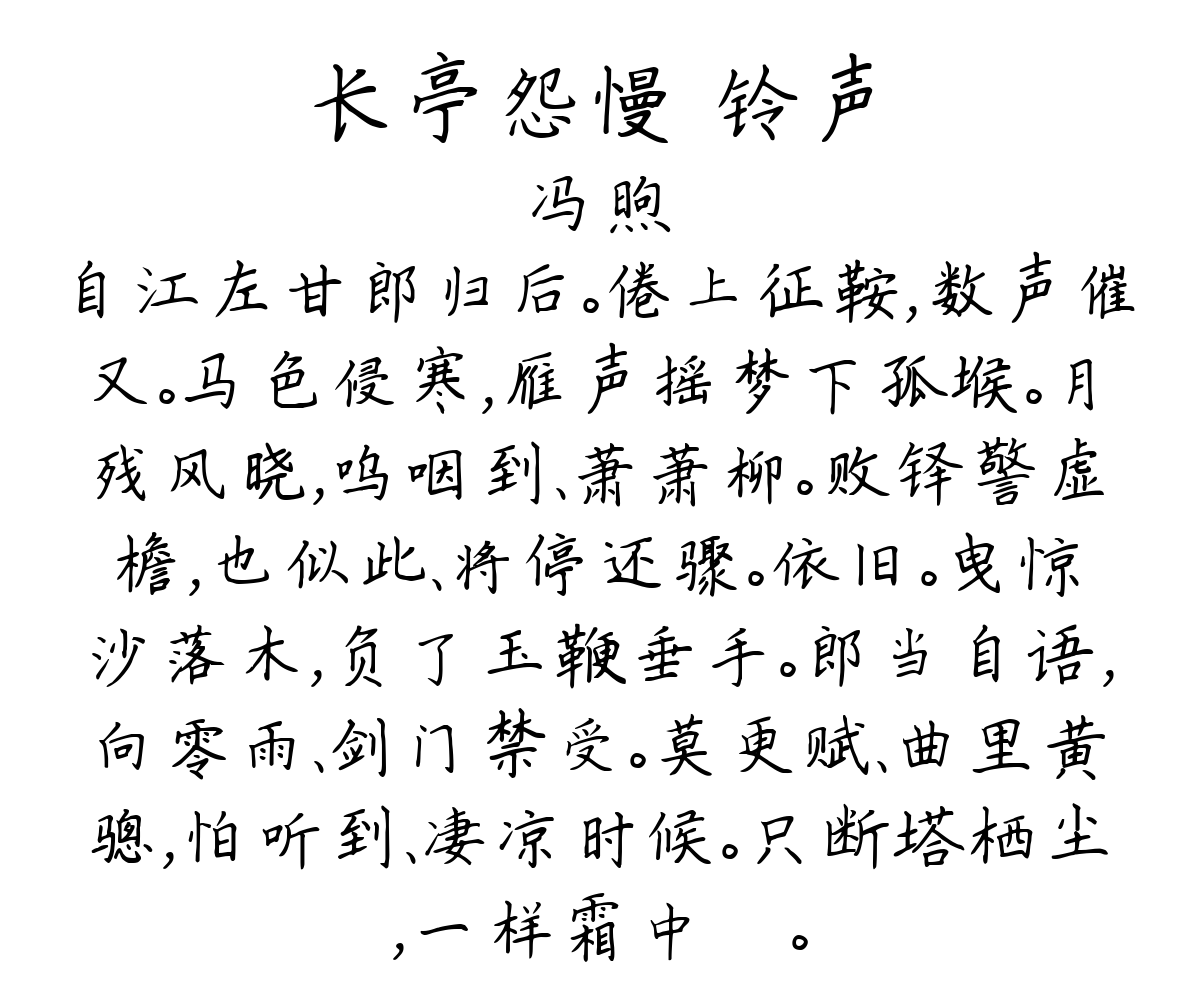 长亭怨慢 铃声
冯煦
自江左甘郎归后。倦上征鞍,数声催
又。马色侵寒,雁声摇梦下孤堠。月
残风晓,呜咽到、萧萧柳。败铎警虚
檐,也似此、将停还骤。依旧。曳惊
沙落木,负了玉鞭垂手。郎当自语,
向零雨、剑门禁受。莫更赋、曲里黄
骢,怕听到、凄凉时候。只断塔栖尘
,一样霜中 。